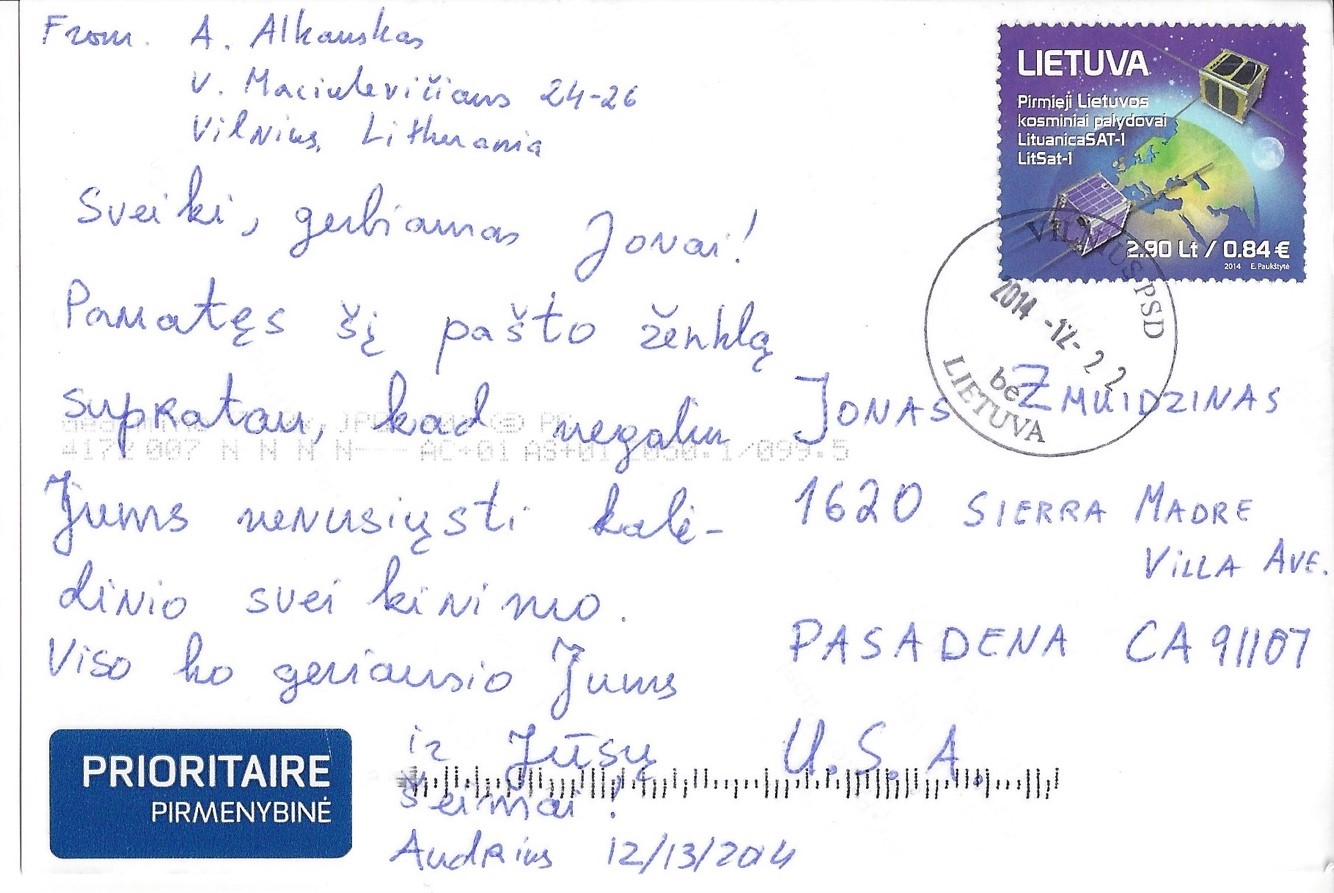 From. A. Alkauskas
V. Maciulevičiaus 24-26
Vilnius, Lithuania
LIETUVA
Pirmieji Lietuvos
kosminiai palydovai
LituanicaSAT-1
LitSat-1
2.90 Lt / 0.84 €
2014 E. Paukštytė
VILNIUS PSD
2014 -12- 2 2
be
LIETUVA
Sveiki, gerbiamas Jonai!
Pamatęs šį pašto ženklą
supratau, kad negaliu
Jums nenusiųsti kalė-
dinio sveikinimo.
Viso ko geriausio Jums
ir Jūsų
šeimai!
Audrius 12/13/2014
JONAS ZMUIDZINAS
1620 SIERRA MADRE
VILLA AVE.
PASADENA CA 91107
U.S.A.
4172 007 N N N N
PRIORITAIRE
PIRMENYBINĖ